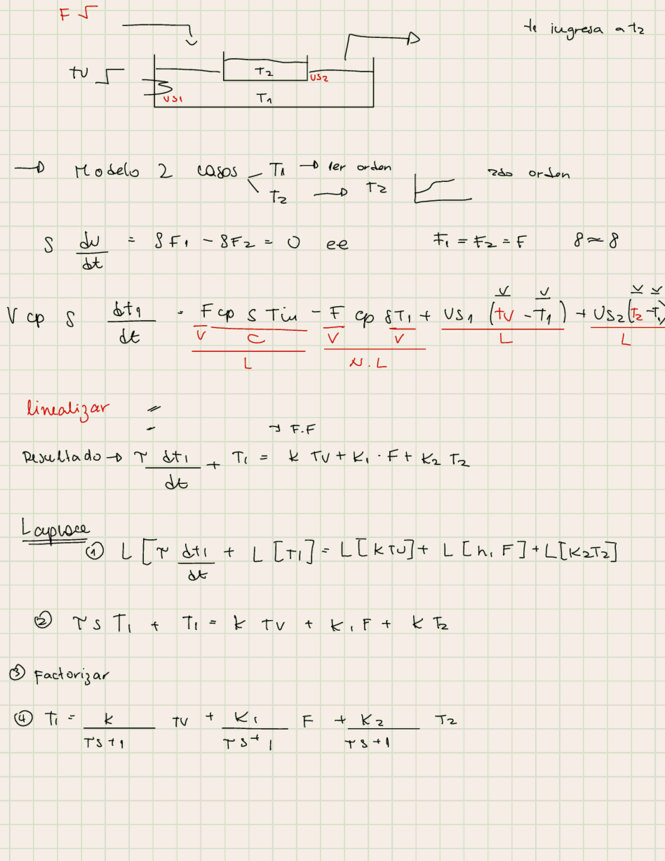 F
t1 ingresa a t2
tv
T2
US2
US1
T1
→ Modelo 2 casos < T1 → 1er orden
T2 → T2 2do orden
ρ dv/dt = ρF1 - ρF2 = 0 ee F1 = F2 = F ρ ≈ ρ
V cp ρ dt1/dt = F cp ρ Tin - F cp ρT1 + US1 (tv - T1) + US2(T2 - T1
V C V V V V V V
L N.L L L
linealizar
→ F.F
Resultado → τ dt1/dt + T1 = k TV + K1 · F + K2 T2
Laplace
① L [τ dt1/dt + L [T1] = L[kTV] + L [k1 F] + L[K2T2]
② τ s T1 + T1 = k TV + K1 F + K T2
③ Factorizar
④ T1 = k/τs+1 TV + K1/τs+1 F + K2/τs+1 T2